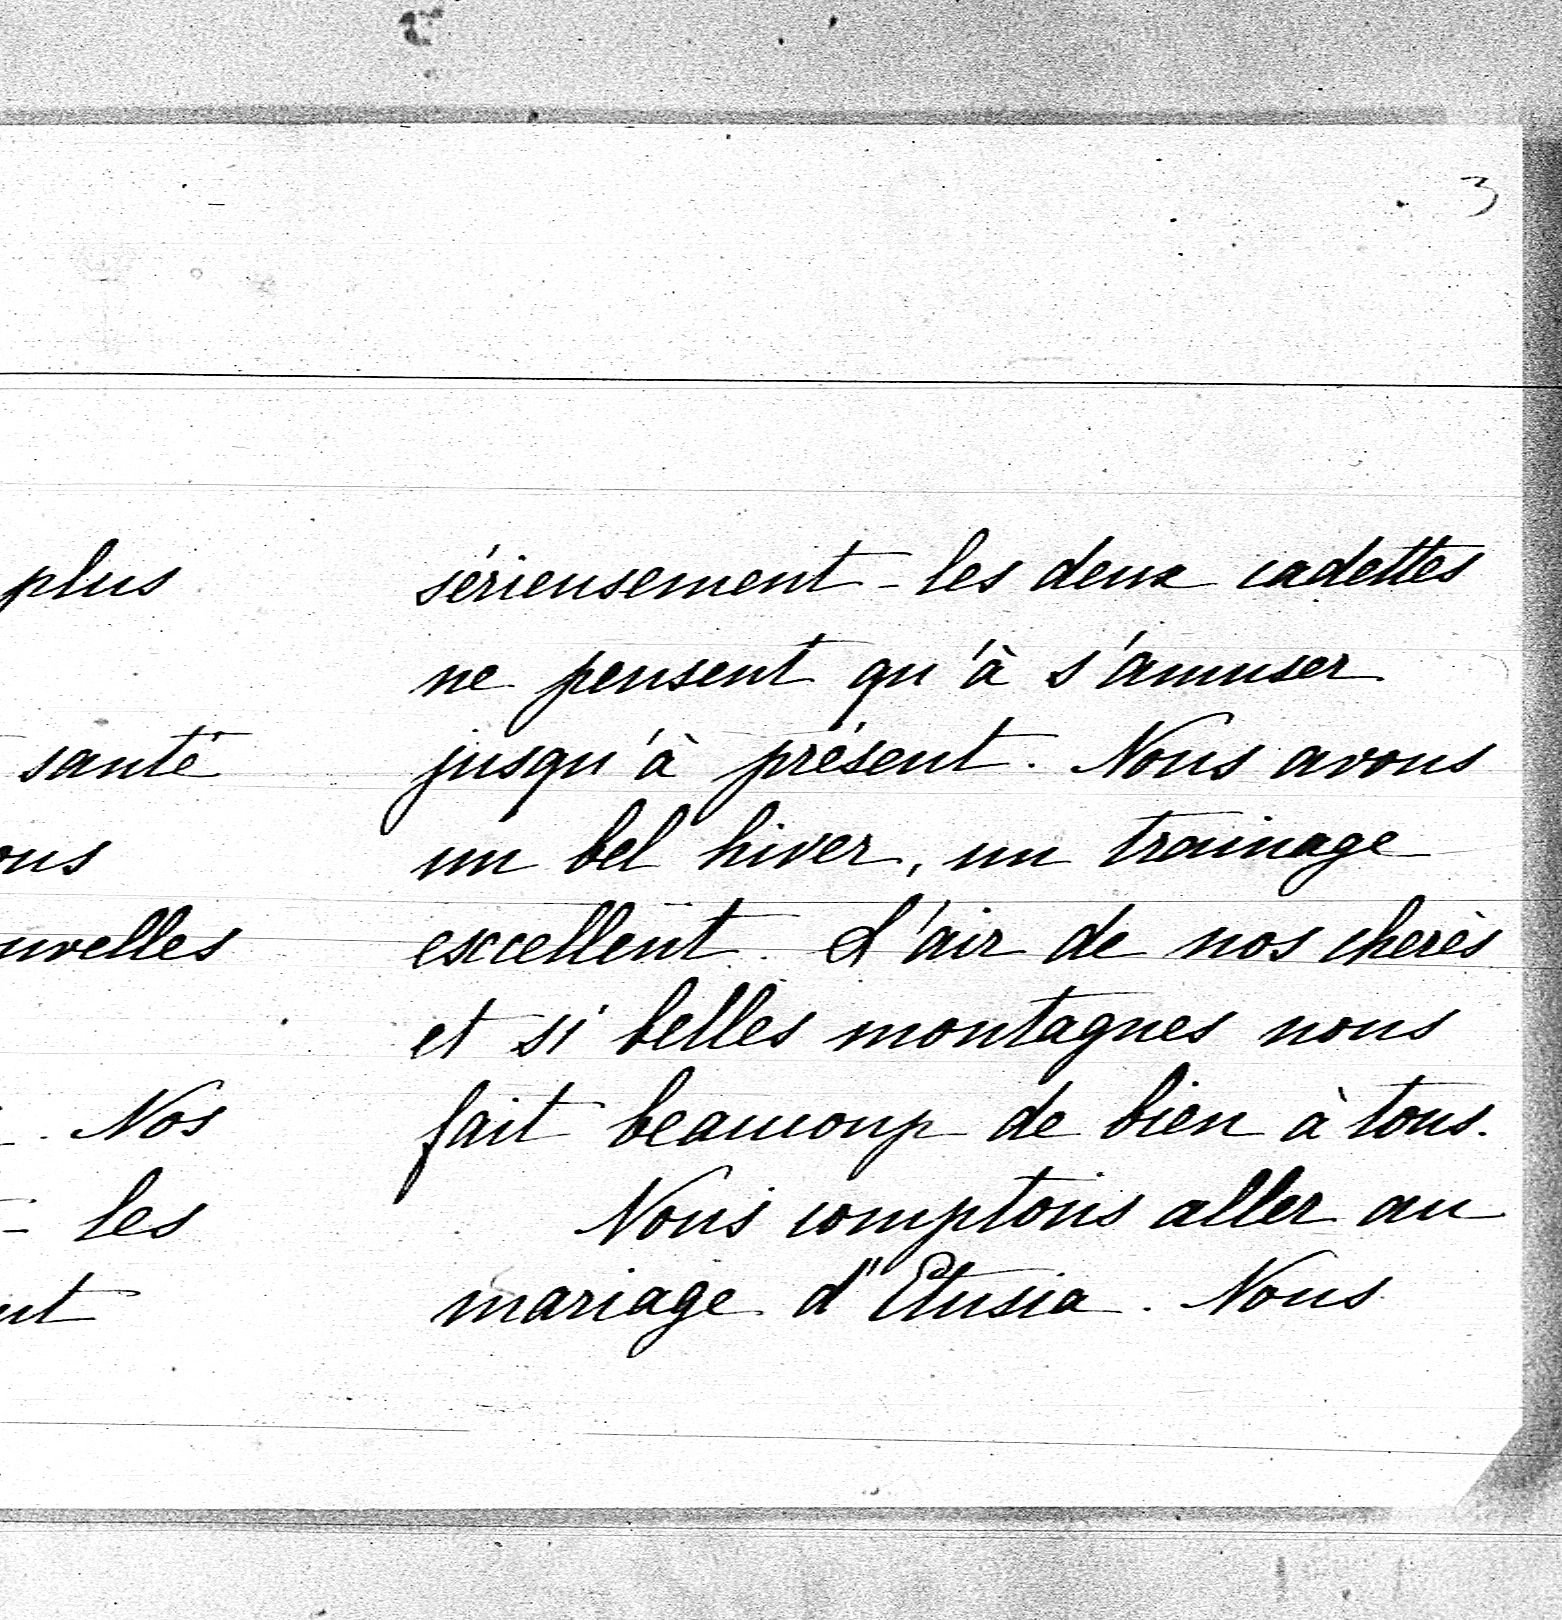 3
plus
santé
ous
uvelles
. Nos
- les
nt
sérieusement - les deux cadettes
ne pensent qu'à s'amuser
jusqu'à présent. Nous avons
un bel hiver, un trainage
excellent. L'air de nos cherès
et si belles montagnes nous
fait beaucoup de bien à tous.
Nous comptons aller au
mariage d'Etusia. Nous